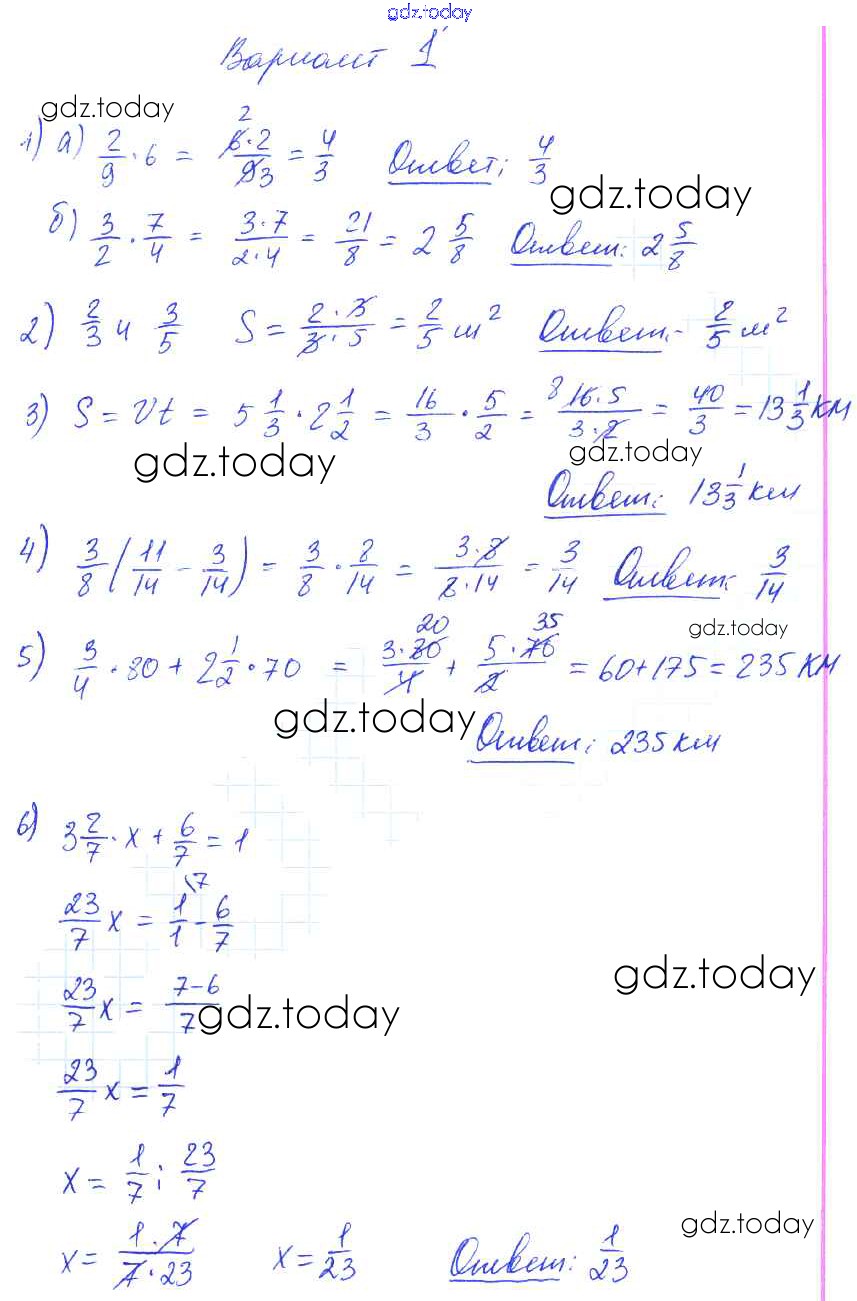 gdz.today
Вариант 1
gdz.today
1) а) 2/9 · 6 = 6·2/9 = 4/3 Ответ: 4/3
2 3
gdz.today
б) 3/2 · 7/4 = 3·7/2·4 = 21/8 = 2 5/8 Ответ: 2 5/8
2) 2/3 и 3/5 S = 2·3/3·5 = 2/5 м² Ответ: 2/5 м²
3) S = Vt = 5 1/3 · 2 1/2 = 16/3 · 5/2 = 8 16·5/3·2 = 40/3 = 13 1/3 КМ
gdz.today gdz.today
Ответ: 13 1/3 км
4) 3/8 (11/14 - 3/14) = 3/8 · 8/14 = 3·8/8·14 = 3/14 Ответ: 3/14
gdz.today
20 35
5) 3/4 · 80 + 2 1/2 · 70 = 3·80/4 + 5·70/2 = 60+175 = 235 КМ
gdz.today
Ответ: 235 км
6) 3 2/7 · x + 6/7 = 1
23/7 x = 1/1 \7 - 6/7
gdz.today
23/7 x = 7-6/7
gdz.today
23/7 x = 1/7
x = 1/7 : 23/7
gdz.today
x = 1·7/7·23 x = 1/23 Ответ: 1/23